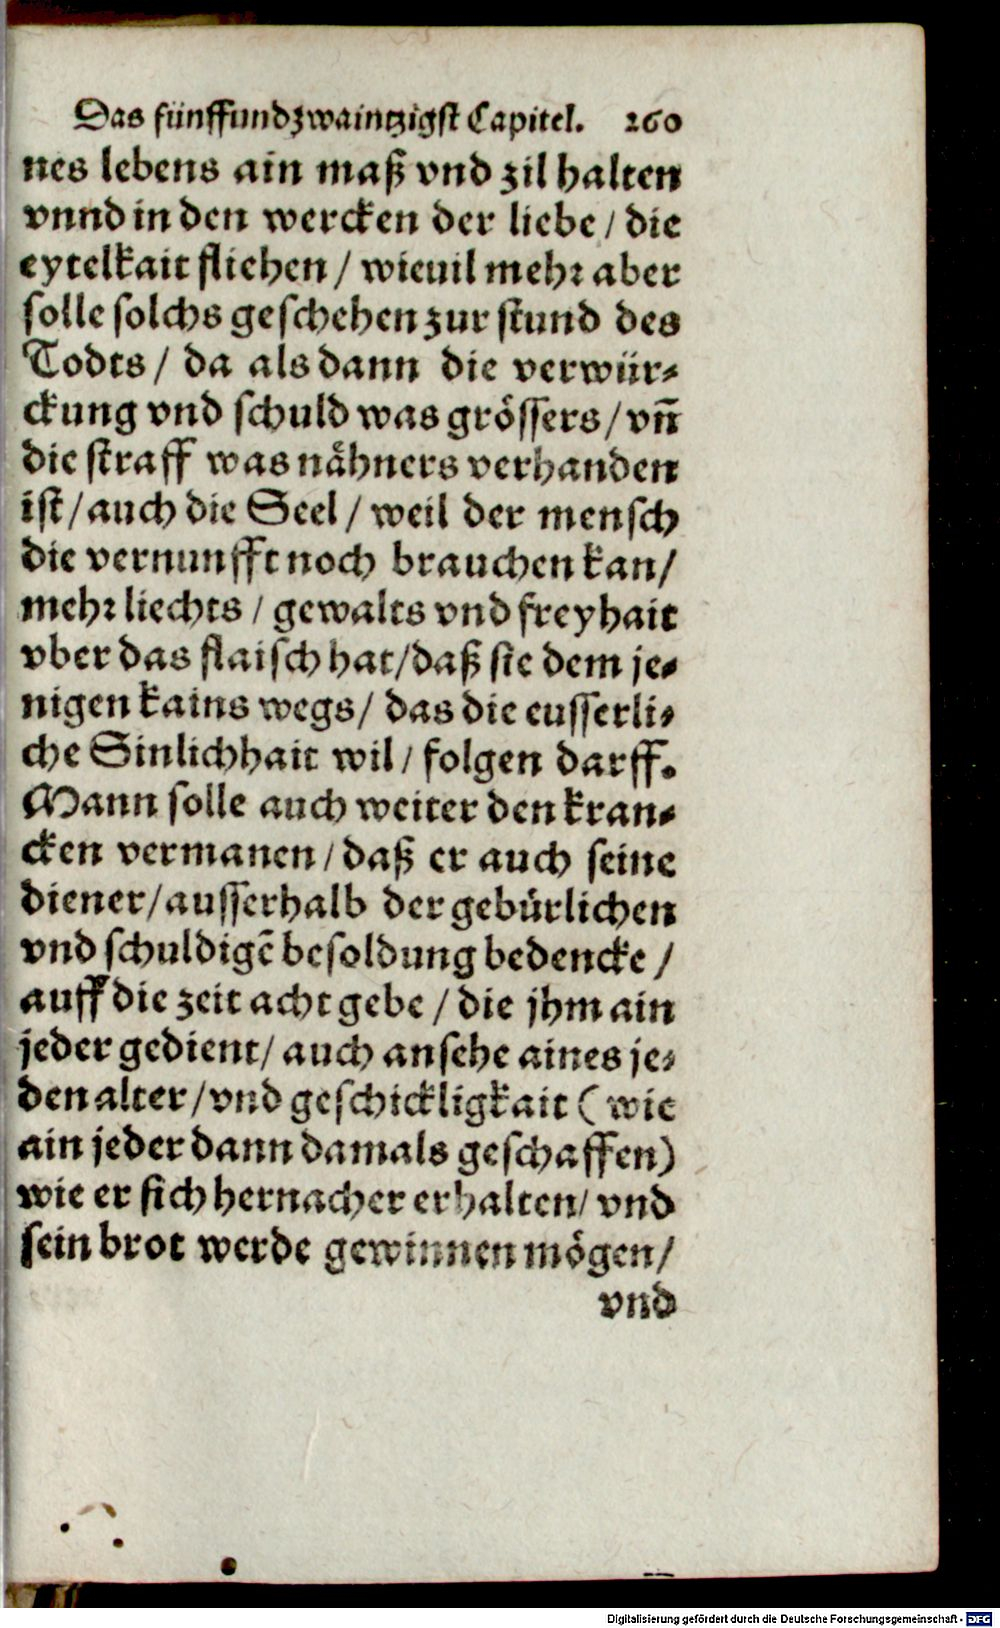 Das fünffundzwaintzigst Capitel. 260
nes lebens ain maß vnd zil halten
vnnd in den wercken der liebe / die
eytelkait fliehen / wieuil mehr aber
solle solchs geschehen zur stund des
Todts / da als dann die verwür⸗
ckung vnd schuld was grössers / vn̄
die straff was nähners verhanden
ist / auch die Seel / weil der mensch
die vernunfft noch brauchen kan /
mehr liechts / gewalts vnd freyhait
vber das flaisch hat / daß sie dem je⸗
nigen kains wegs / das die eusserli⸗
che Sinlichhait wil / folgen darff.
Mann solle auch weiter den kran⸗
cken vermanen / daß er auch seine
diener / ausserhalb der gebürlichen
vnd schuldigē besoldung bedencke /
auff die zeit acht gebe / die jhm ain
jeder gedient / auch ansehe aines je⸗
den alter / vnd geschickligkait ( wie
ain jeder dann damals geschaffen )
wie er sich hernacher erhalten / vnd
sein brot werde gewinnen mögen /
vnd
Digitalisierung gefördert durch die Deutsche Forschungsgemeinschaft - DFG